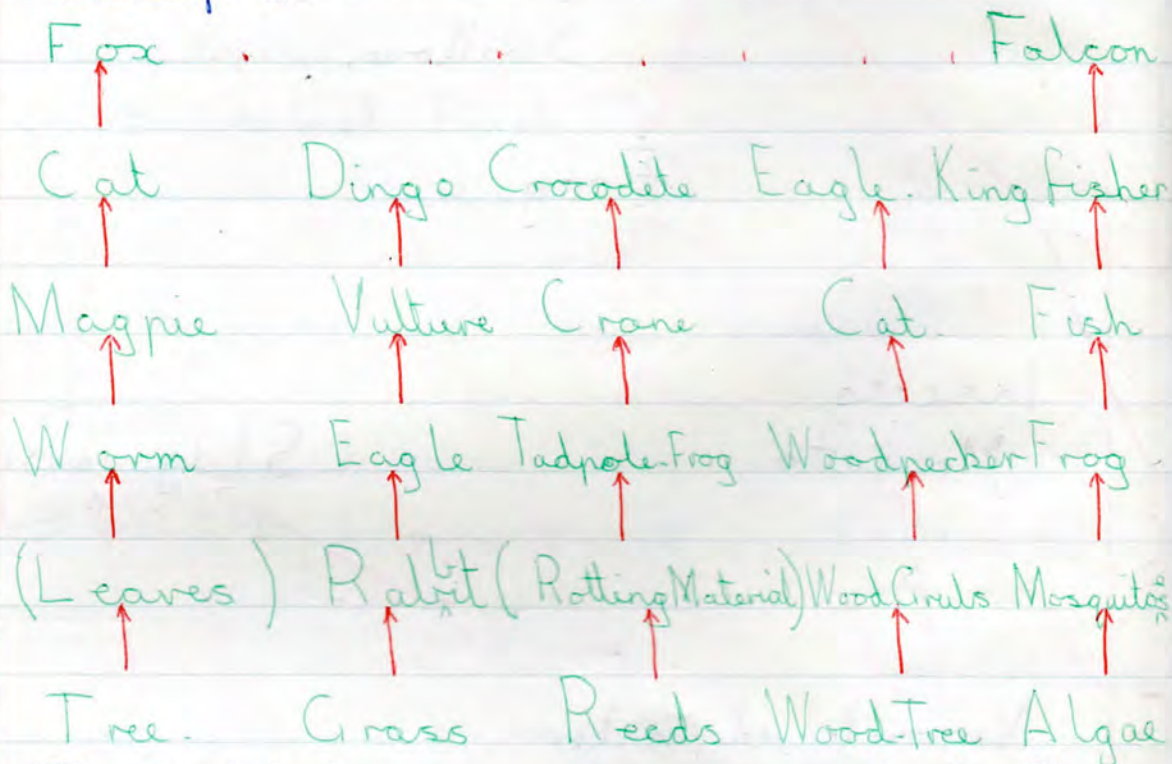 Fox Falcon
Cat Dingo Crocodile Eagle. King fisher
Magpie Vulture Crane Cat. Fish
Worm Eagle Tadpole-Frog Woodpecker Frog.
(Leaves) Rabbit (Rotting Material) Wood Grubs Mosquitoes
Tree. Grass Reeds Wood-Tree Algae